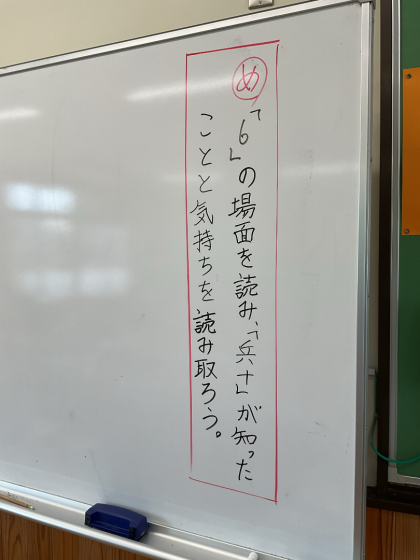 め
「6」の場面を読み、「兵十」が知った
ことと気持ちを読み取ろう。